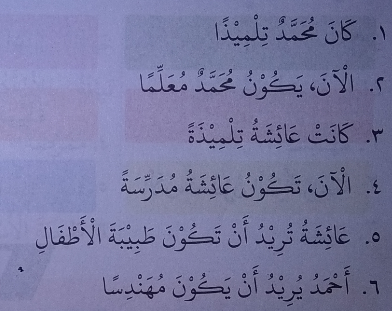 ١. كَانَ مُحَمَّدٌ تِلْمِيذًا
٢. اَلْآنَ، يَكُوْنُ مُحَمَّدٌ مُعَلِّمًا
٣. كَانَتْ عَائِشَةُ تِلْمِيْذَةً
٤. اَلْآنَ، تَكُوْنُ عَائِشَةُ مُدَرِّسَةً
٥. عَائِشَةُ تُرِيْدُ أَنْ تَكُوْنَ طَبِيْبَةَ الْأَطْفَالِ
٦. أَحْمَدُ يُرِيْدُ أَنْ يَكُوْنَ مُهَنْدِسًا